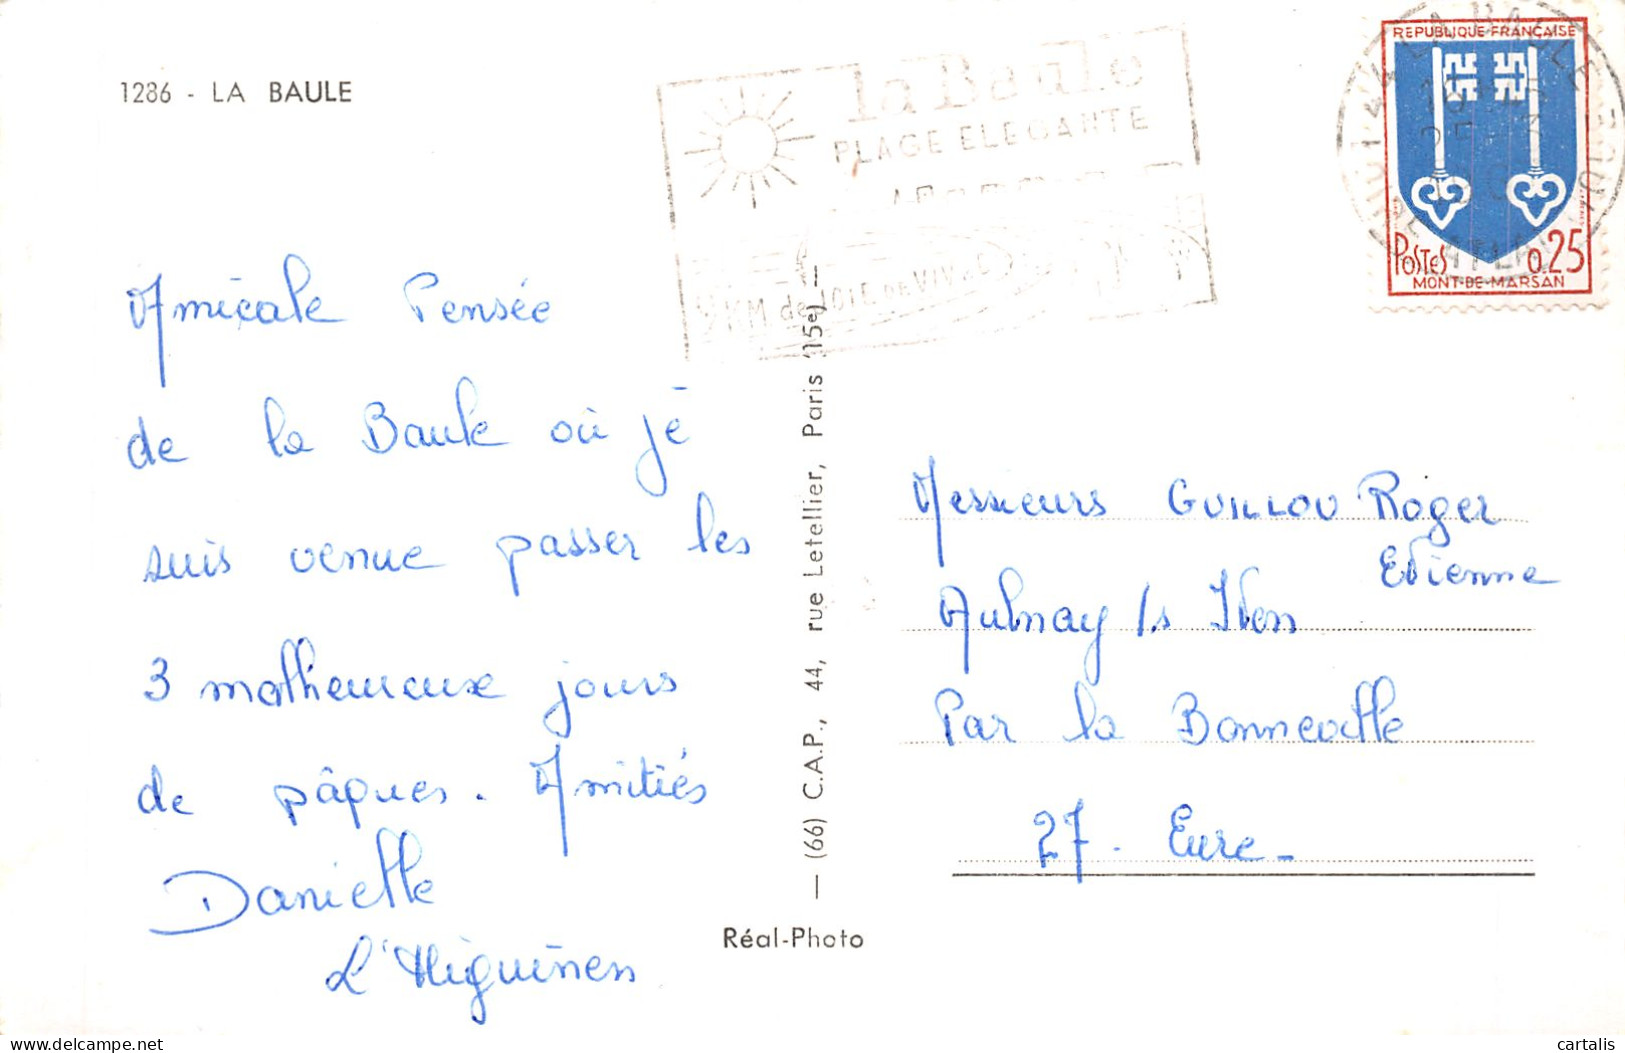 1286 - LA BAULE
la Baule
PLAGE ELEGANTE
9 KM de JOIE DE VIVRE
REPUBLIQUE FRANÇAISE
POSTES 0.25
MONT-DE-MARSAN
Amicale Pensée
de la Baule où je
suis venue passer les
3 malheureux jours
de pâques. Amitiés
Danielle
— (66) C.A.P., 44, rue Letellier, Paris (15e) —
Réal-Photo
Messieurs GUILLOU Roger
Etienne
Aulnay /s Iton
Par la Bonneville
27 - Eure -
cartalis